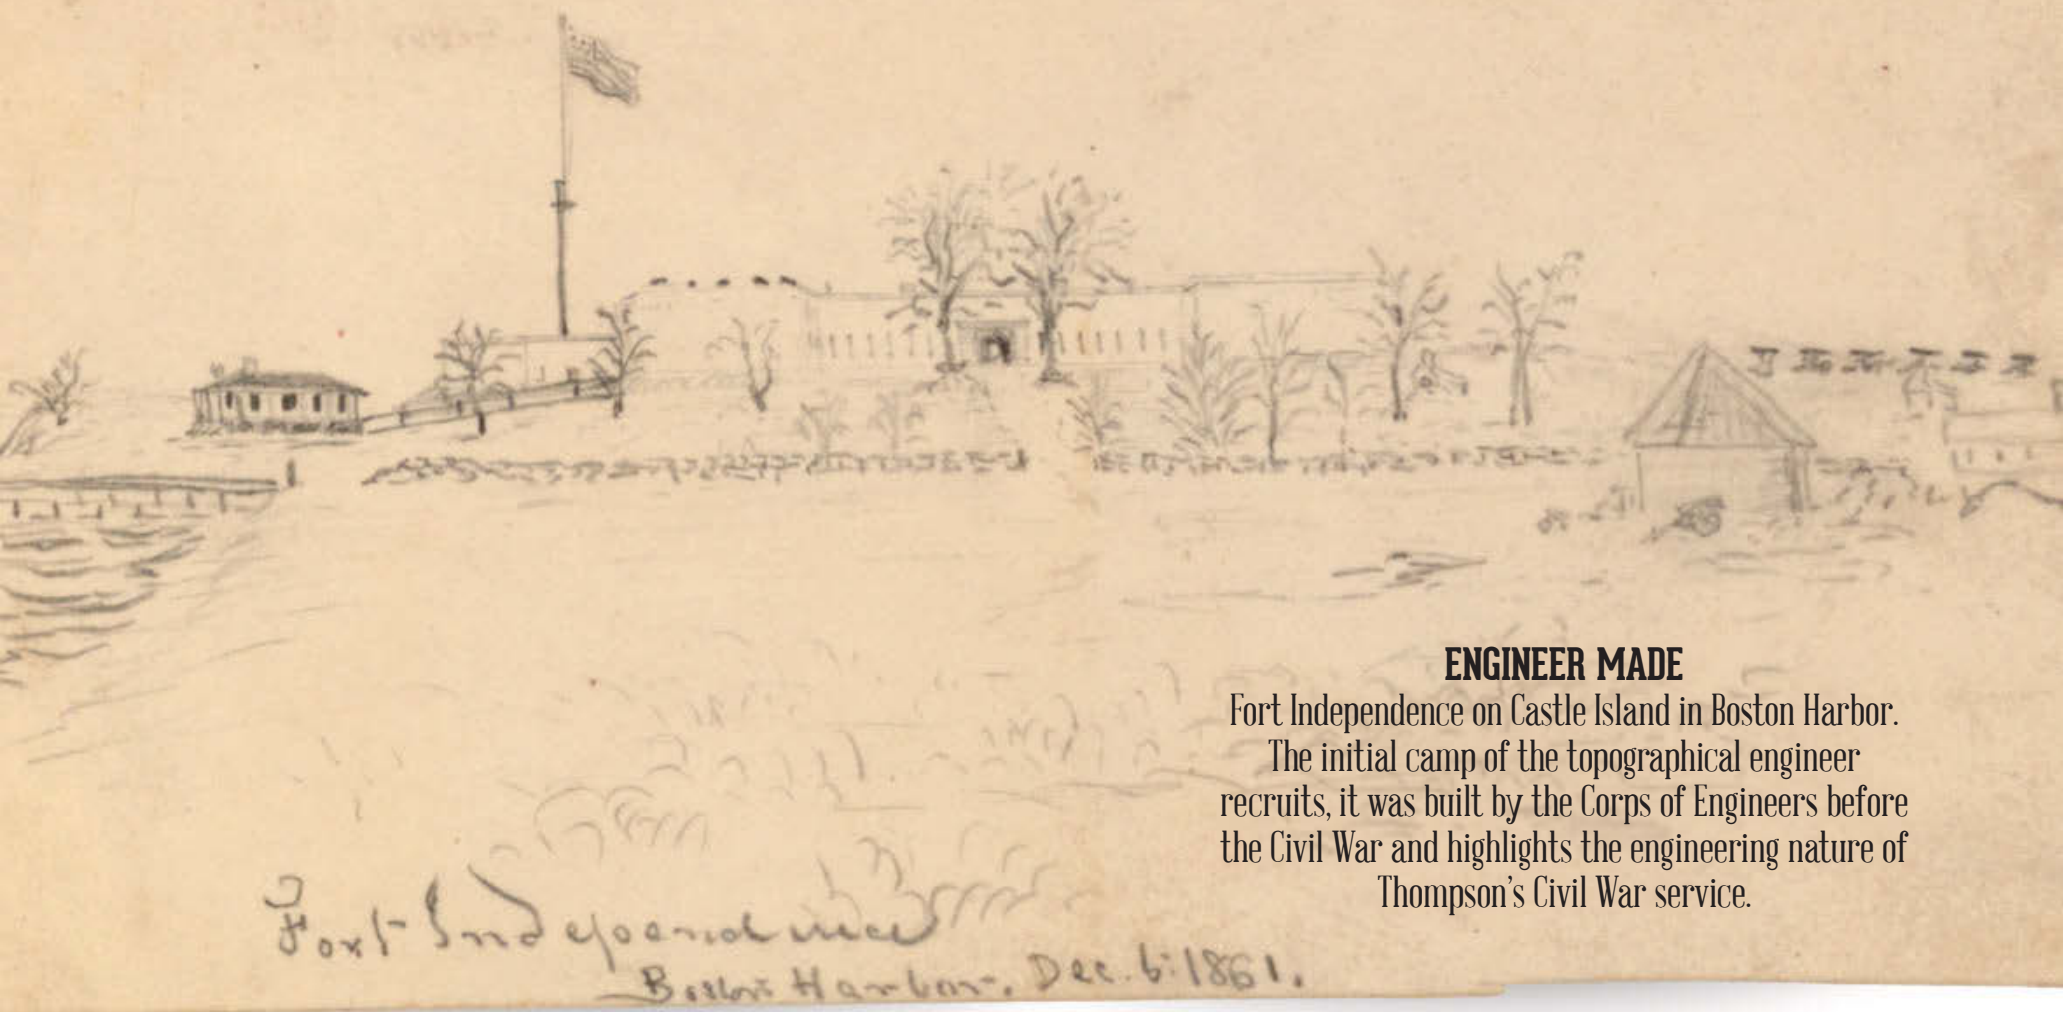 ENGINEER MADE
Fort Independence on Castle Island in Boston Harbor.
The initial camp of the topographical engineer
recruits, it was built by the Corps of Engineers before
the Civil War and highlights the engineering nature of
Thompson's Civil War service.
Fort Independence
Boston Harbor. Dec. 6: 1861.